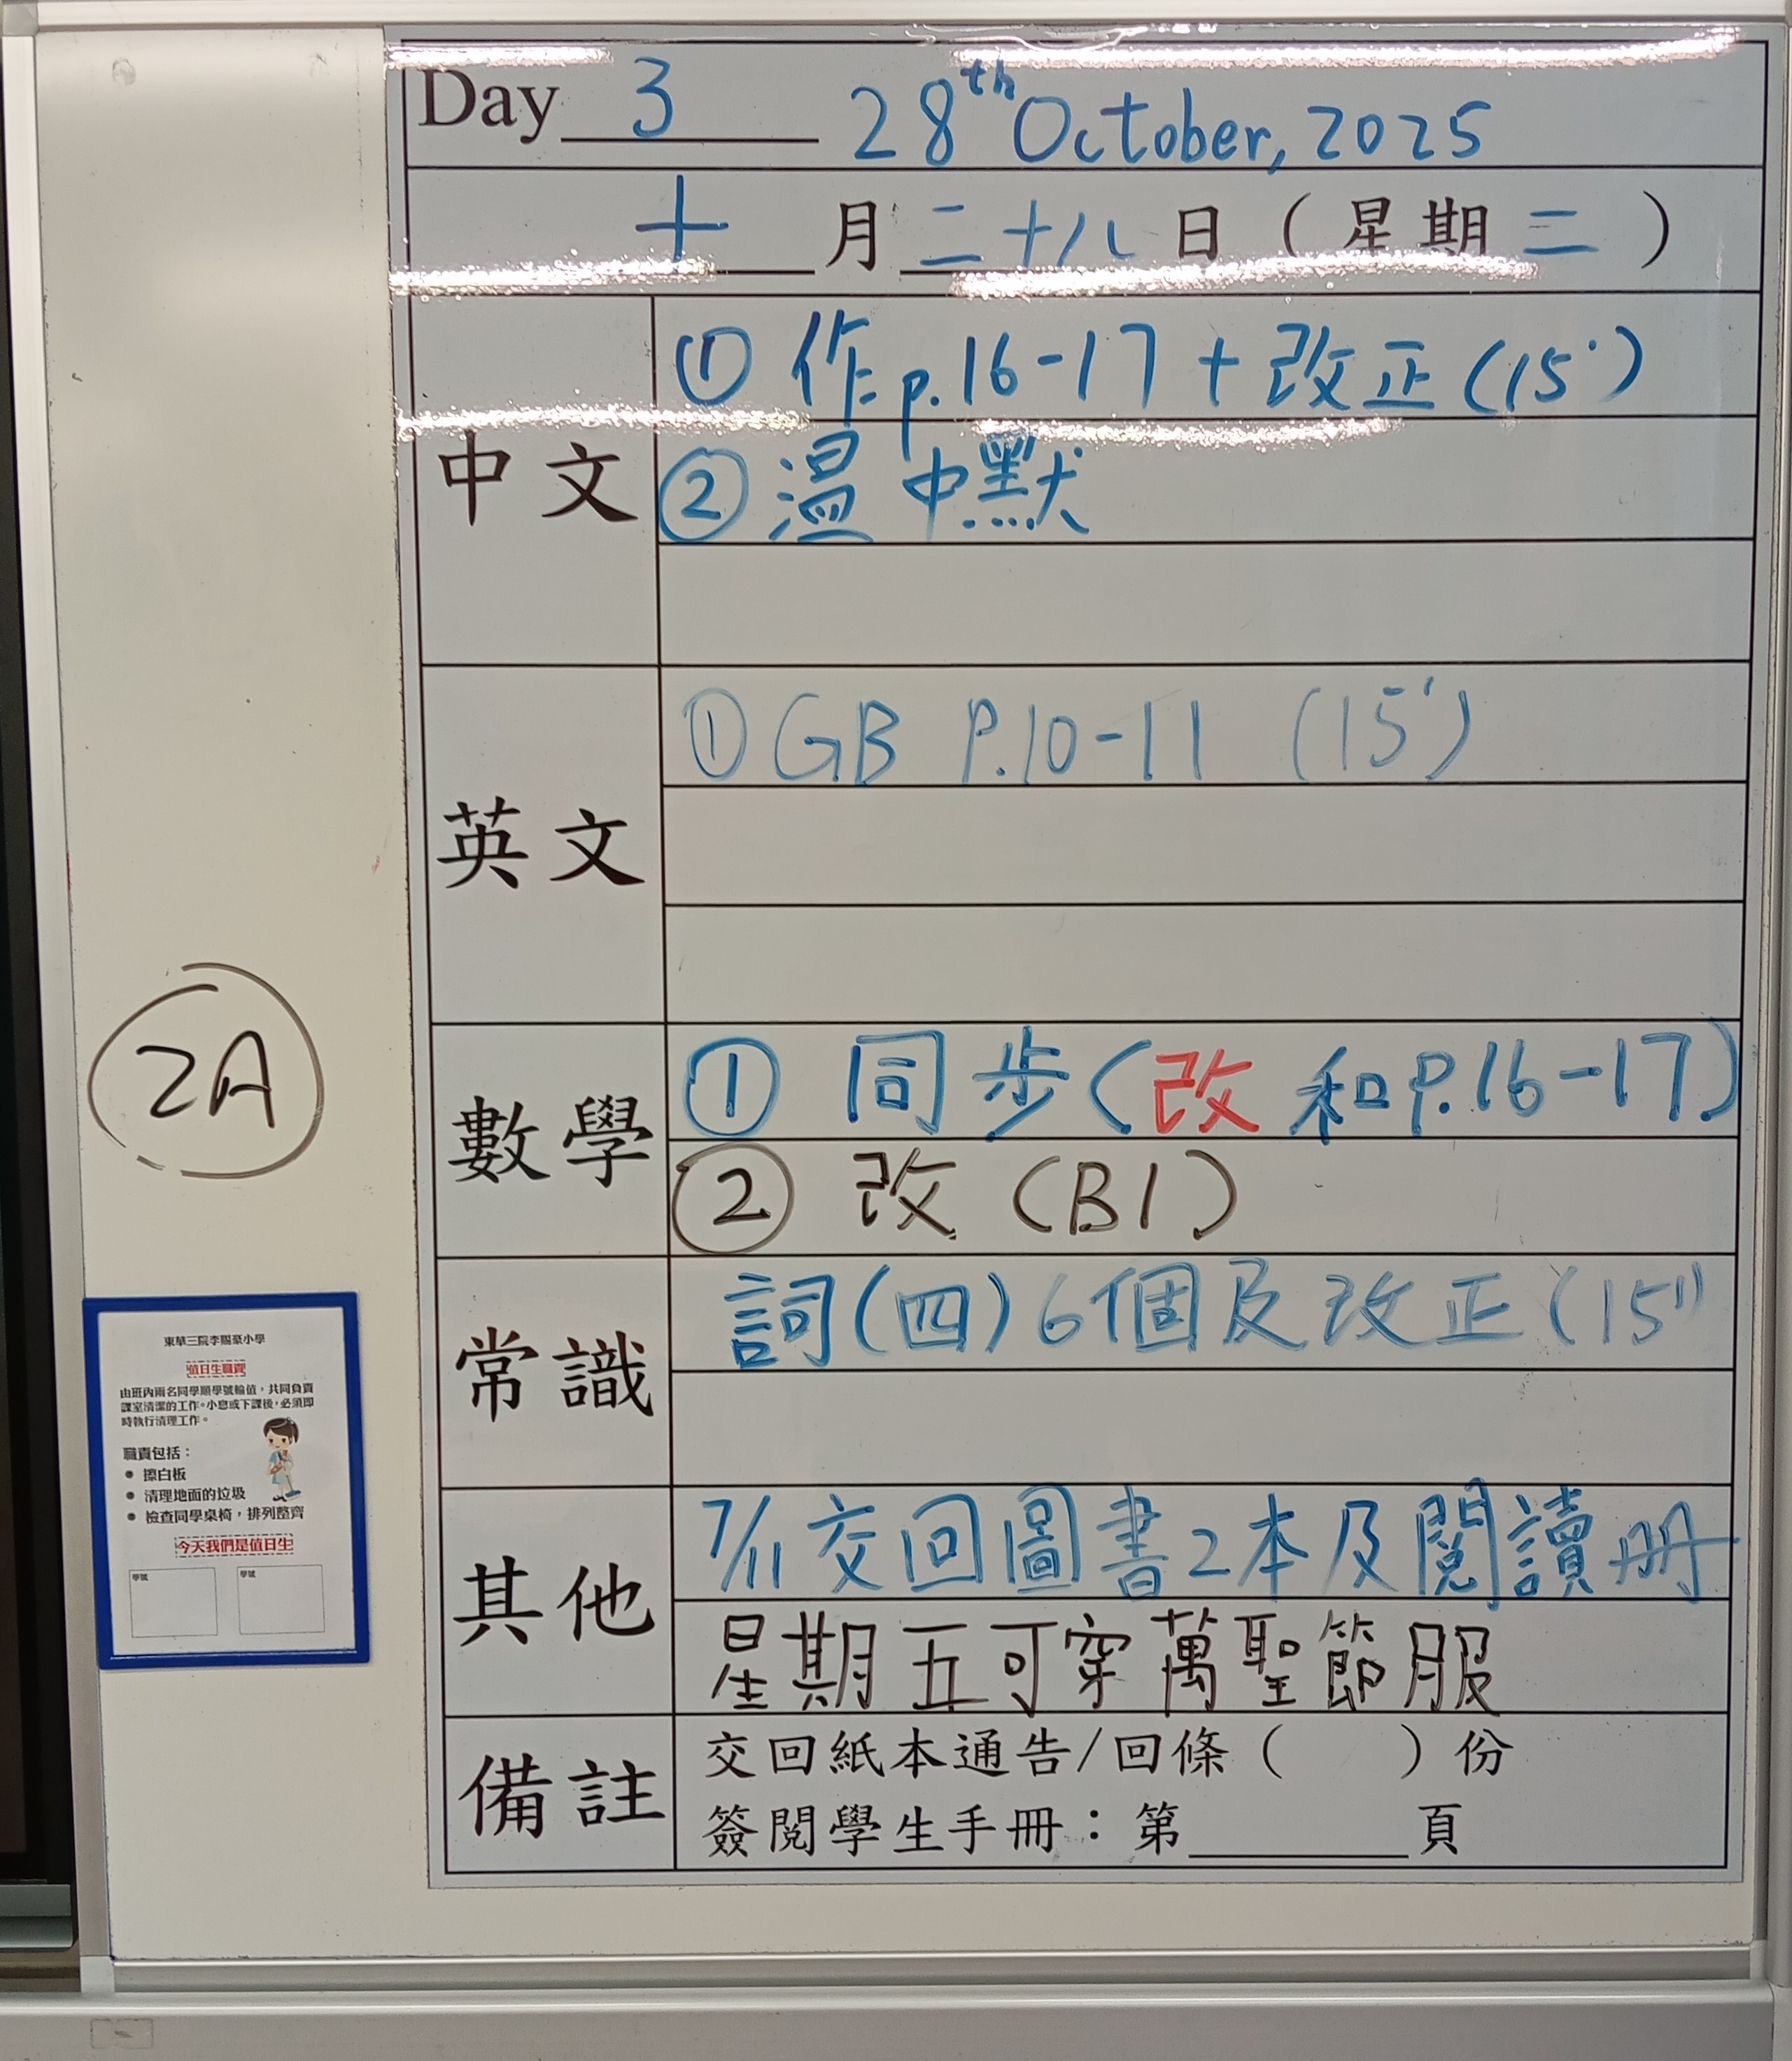 Day 3 28th October, 2025
十月二十八日（星期二）
中文
① 作p.16-17 + 改正(15')
② 溫中默
英文
① GB P.10-11 (15')
數學
① 同步(改和P.16-17)
② 改 (B1)
常識
詞(四)6個及改正(15')
其他
7/11 交回圖書2本及閱讀册
星期五可穿萬聖節服
備註
交回紙本通告/回條（　　）份
簽閱學生手冊：第______頁
2A
東華三院李賜豪小學
值日生職責
由班內兩名同學順學號輪值，共同負責
課室清潔的工作。小息或下課後，必須即
時執行清理工作。
職責包括：
• 擦白板
• 清理地面的垃圾
• 檢查同學桌椅，排列整齊
今天我們是值日生
學號 學號